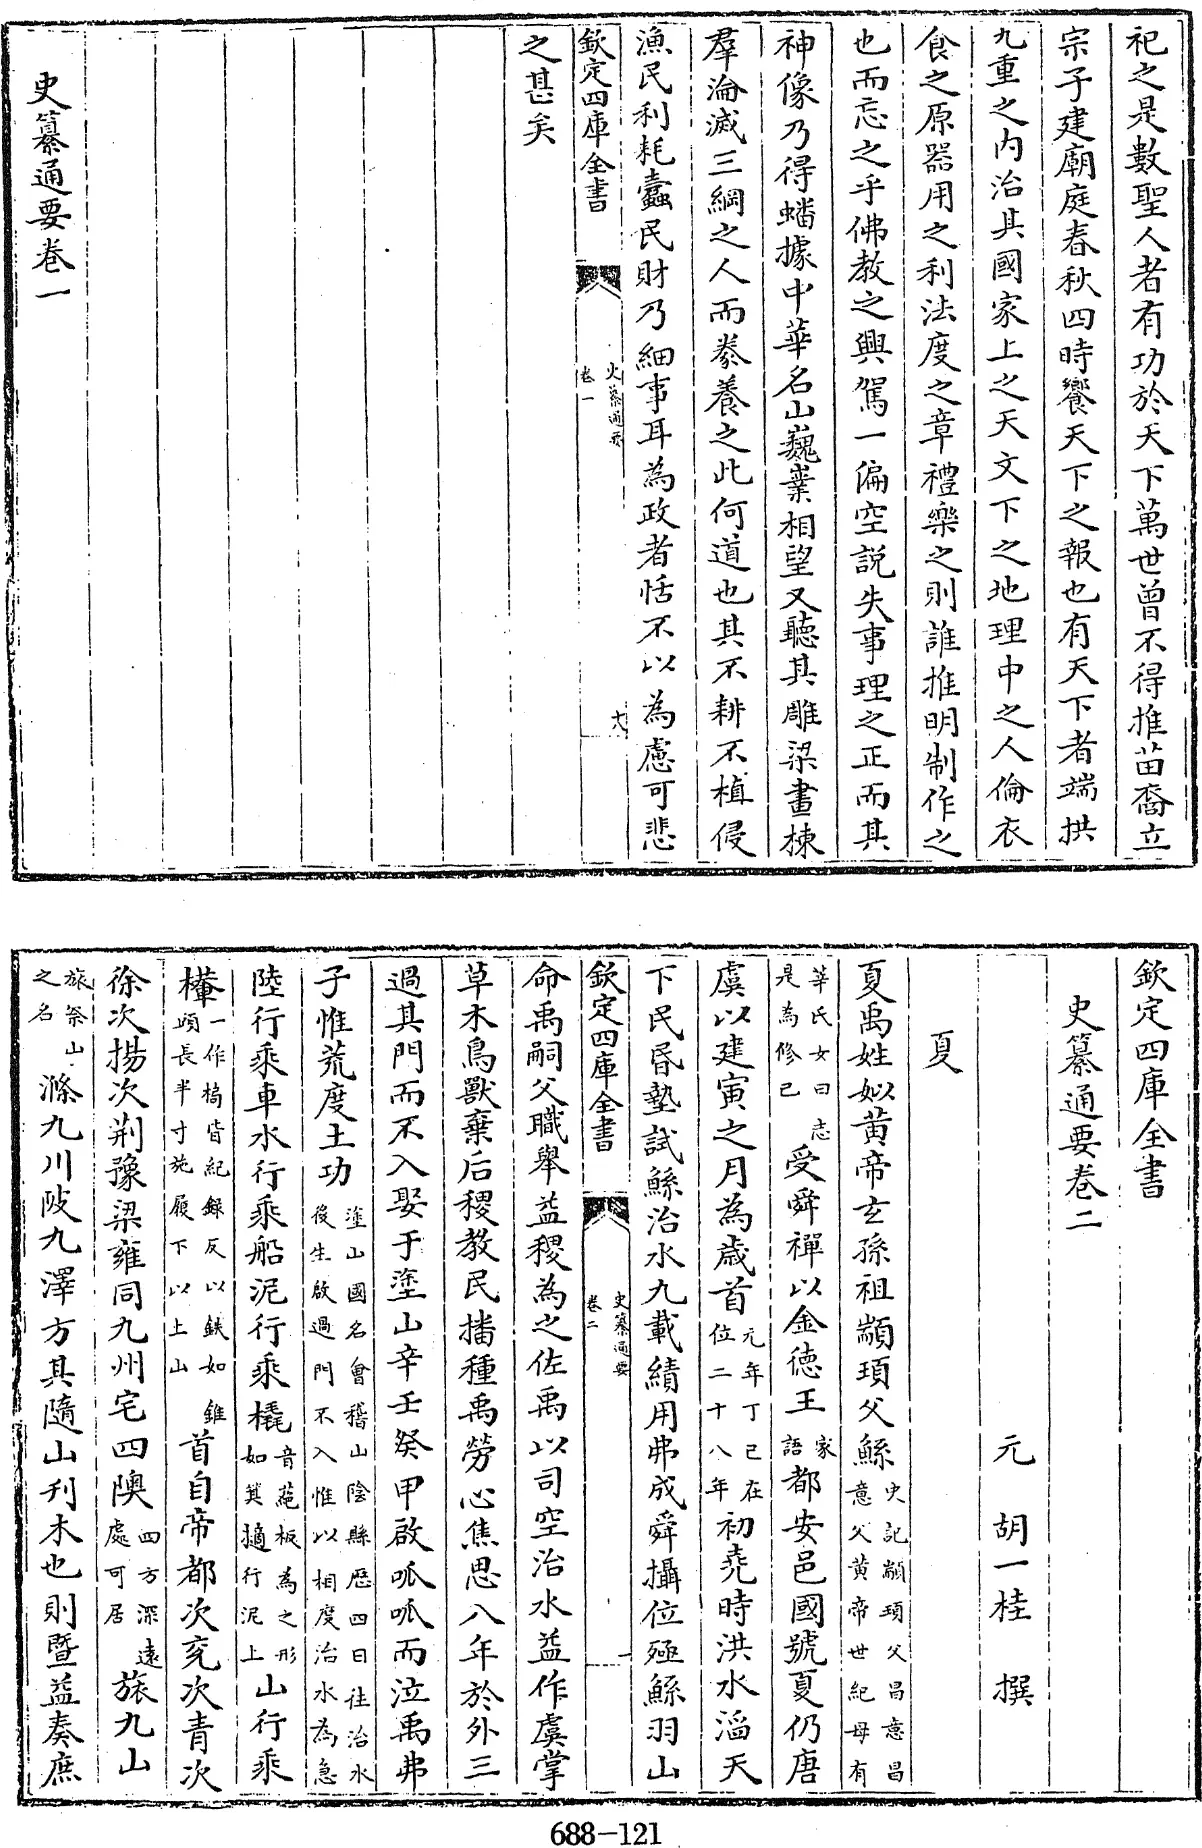 祀之是數聖人者有功於天下萬世曾不得推苗裔立
宗子建廟庭春秋四時饗天下之報也有天下者端拱
九重之内治其國家上之天文下之地理中之人倫衣
食之原器用之利法度之章禮樂之則誰推明制作之
也而忘之乎佛教之興駕一偏空説失事理之正而其
神像乃得蟠據中華名山巍業相望又聽其雕梁畫棟
羣淪滅三綱之人而豢養之此何道也其不耕不植侵
漁民利耗蠹民財乃細事耳為政者恬不以為慮可悲
欽定四庫全書
史纂通要
卷一
十八
之甚矣
史纂通要卷一
欽定四庫全書
史纂通要卷二
元 胡一桂 撰
夏
夏禹姓姒黄帝玄孫祖顓頊父鯀史記顓頊父昌意昌
意父黄帝世紀母有
莘氏女曰志
是為修己受舜禪以金德王家
語都安邑國號夏仍唐
虞以建寅之月為歲首元年丁巳在
位二十八年初堯時洪水滔天
下民昏墊試鯀治水九載績用弗成舜攝位殛鯀羽山
欽定四庫全書
史纂通要
卷二
一
命禹嗣父職舉益稷為之佐禹以司空治水益作虞掌
草木鳥獸棄后稷教民播種禹勞心焦思八年於外三
過其門而不入娶于塗山辛壬癸甲啟呱呱而泣禹弗
子惟荒度土功塗山國名會稽山陰縣歴四日往治水
後生啟過門不入惟以相度治水為急
陸行乘車水行乘船泥行乘橇音蕝板為之形
如箕擿行泥上山行乘
檋一作梮皆紀録反以鐵如錐
頭長半寸施履下以上山首自帝都次兖次青次
徐次揚次荆豫梁雍同九州宅四隩四方深遠
處可居旅九山
旅祭山
之名滌九川陂九澤方其隨山刋木也則暨益奏庶
688-121